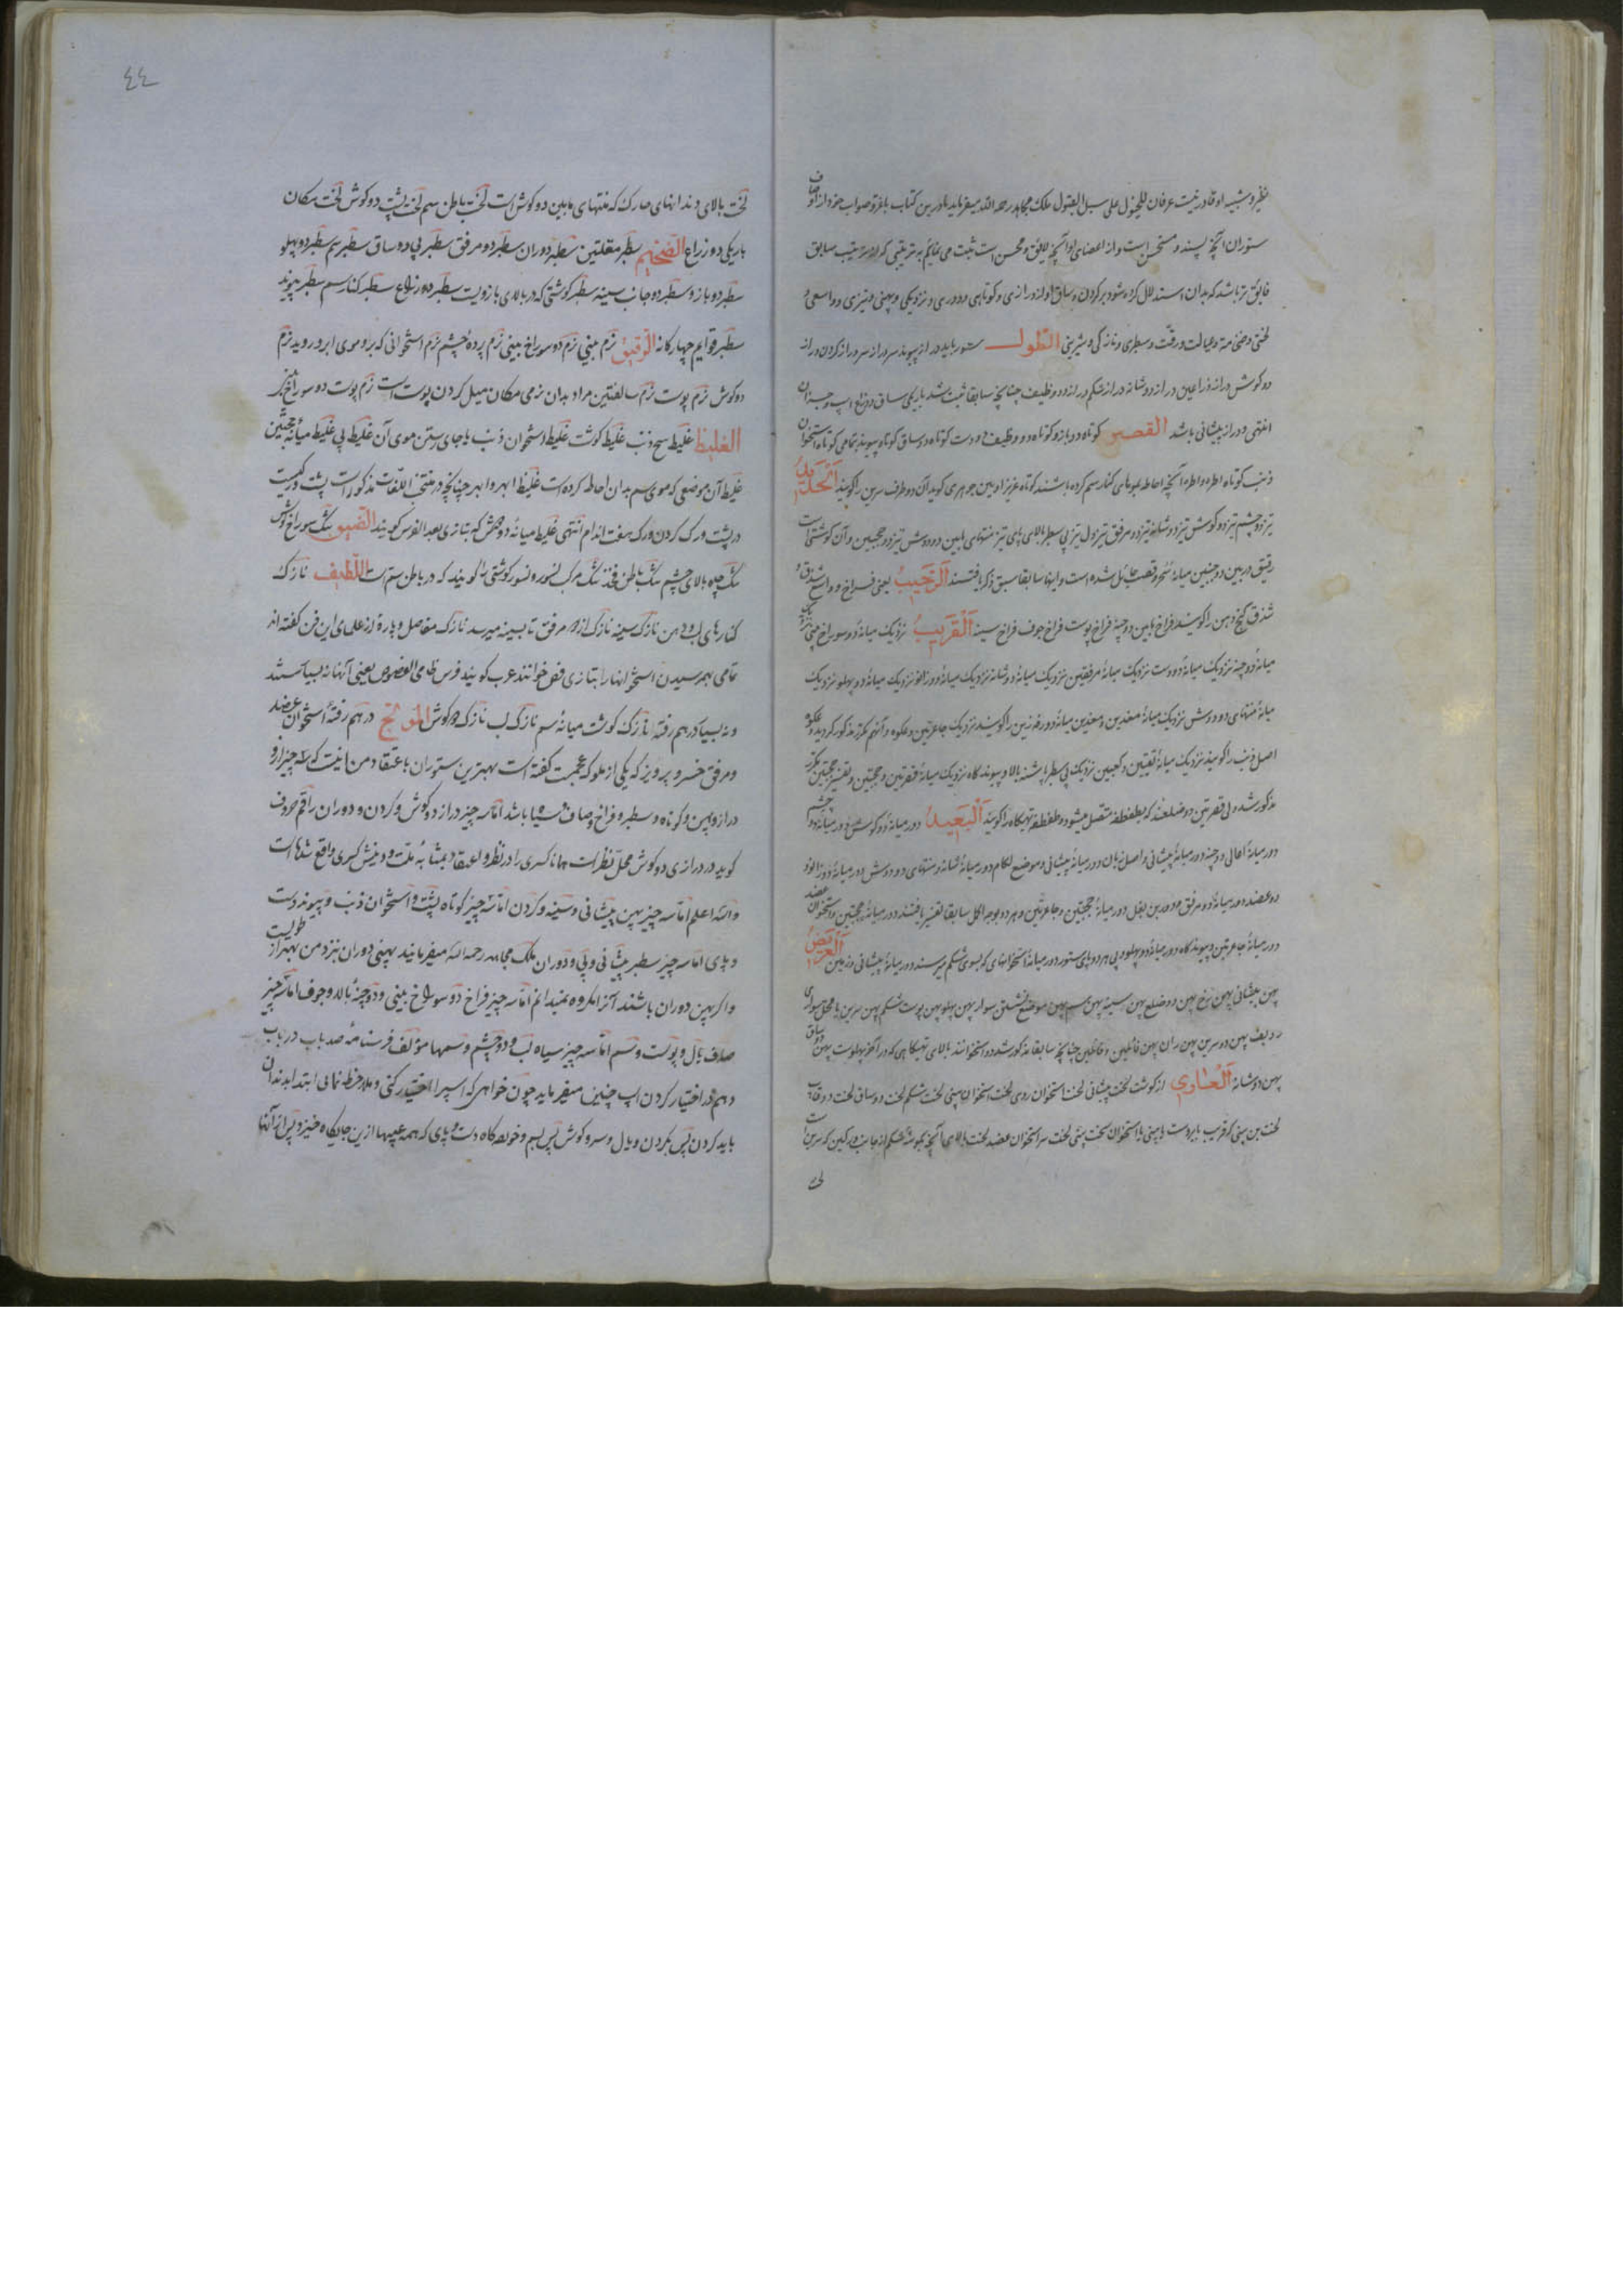 نظیر و شبیه او قادر نیت عرفان للخیول علی سبیل القبول ملک مجاهد رحمه الله میفرماید مادرین کتاب صواب خود از اوصاف
ستوران آنچه پسند و مستحسن است و از اعضای او آنچه لایق و محسن است ثبت می نمایم به ترتیبی که از ترتیب سابق
فایق تر باشد که بدان استدلال کرده شود بر کردن و ساق او از درازی و کوتاهی و دوری و نزدیکی و پهنی و تیزی و واسعی و
لختی و ضخامة و رقت و سطبری و نازکی و شیرینی الطول ستور باید دراز پیوند سر دراز سر دراز کردن دراز
دو کوش دراز ذراعین دراز دو شانه دراز شکم دراز دو وظیف چنانچه سابقا ثبت شد باریکی ساق و ذراع اسپ
انتهی و دراز پیشانی باشد القصیر کوتاه دو بازو کوتاه دو وظیف دو دست کوتاه دو ساق کوتاه پیوند تمامی کوتاه استخوان
ذنب کوتاه اطره و اطره آنچه احاطه بموهای کنار سم کرده باشند کوتاه غرابین جوهری کوید آن دو طرف سرین را کویند الحدید
تیز دو چشم تیز دو کوش تیز دو شانه تیز دو مرفق تیز دل تیز پی سطبر بالای پای تیز منتهای مابین دو دوش تیز دو حجبین و آن کوشتی است
رقیق در بین دو جنبین میانه حائل شده است و اینها سابقا سبق ذکر یافتند الرحیب یعنی فراخ و واسع شدق و
شدق کنج دهن را کویند فراخ مابین دو جبهه فراخ پوست فراخ جوف فراخ سینه القریب نزدیک میانه دو سوراخ بینی نزدیک
میانه دو جبهه نزدیک میانه دو دست نزدیک میانه مرفقین نزدیک میانه دو شانه نزدیک میانه دو زانو نزدیک میانه دو پهلو نزدیک
میانه منتهای دو دوش نزدیک میانه معدین و معدین میانه دو رفه زین را کویند نزدیک جاعرتین و عکوه و آنهم مکرر مذکور کردید و عکوه
اصل ذنب را کویند نزدیک میانه ثفنتین و کعبین نزدیک پی سطبر پاشنه بالا و پیوند کاه نزدیک میانه قصرتین و حجبتین و تفسیر حجبتین مکرر
مذکور شد ولی قصرتین دو ضلعند که بطفطفه متصل میشود و طفطفه تهیکاه را کویند البعید دور میانه دو کوش دور میانه دو چشم
دور میانه اعالی دو جبهه دور میانه پیشانی و اصل زبان دور میانه پیشانی و موضع لکام دور میانه شانه و منتهای دو دوش دور میانه دو زانو
دو عضد دور میانه دو مرفق دور میانه حجبتین و جاعرتین و هر دو بوجه اکمل سابقا تفسیر یافتند دور میانه حجبتین و استخوان عضد
دور میانه جاعرتین و پیوندگاه دور میانه دو پهلو و پی هر دو پای ستور دور میانه استخوانهای که بسوی شکم میرسند دور میانه پیشانی العریض
پهن پیشانی پهن رخ پهن دو ضلع پهن سینه پهن سم پهن موضع نشستن سوار پهن پهلو پهن پوست شکم پهن سرین یا محل سواری
ردیف پهن دو سرین پهن ران پهن فائلین و فائلین چنانچه سابقا مذکور شد دو استخوانند بالای تهیکاهی که در آخر پهلوست پهن دو ساق
پهن دو شانه العاری از کوشت لخت پیشانی لخت استخوان روی لخت استخوان بینی لخت شکم لخت دو ساق لخت دو قاب
لخت بن بینی که قریب بابروست یا بینی یا استخوان سخت بینی لخت سر استخوان عضد لخت بالای آنچه شکم از جانب که سرین است
لخت
٤٤
لخت بالای دندانهای حارک که منتهای مابین دو کوش است لخت باطن سم لخت پشت دو کوش لخت مکان
باریکی دو ذراع الضخیم سطبر مقلتین سطبر دوران سطبر دو مرفق سطبر پی دو ساق سطبر سم سطبر دو پهلو
سطبر دو بازو سطبر دو جانب سینه سطبر کوشتی که در بالای بازویت سطبر دو ذراع سطبر کنار سم سطبر پیوند
سطبر قوایم چهارکانه الرقیق نرم بینی نرم دو سوراخ بینی نرم پرده چشم نرم استخوانی که برو موی ابرو روید نرم
دو کوش نرم پوست نرم سالفتین مراد بدان نرمی مکان میل کردن پوست است نرم پوست دو سوراخ
الغلیظ غلیظ سح ذنب غلیظ کوشت غلیظ استخوان ذنب یا جای رستن موی آن غلیظ پی غلیظ میانه حجبتین
غلیظ آن موضعی که موی سم بدان احاطه کرده است غلیظ ابهر و ابهر چنانچه در منتخب اللغات مذکور است پشت و رکیست
در پشت و رک کردن و رک هفت اندام انتهی غلیظ میانه دو که بتازی بعد الفرس کویند الضیق تنک سوراخ کوش
تنک چاه بالای چشم تنک باطن فخذ تنک مرکب نسور و نسور کوشتی را کویند که در باطن سم است اللطیف نازک
کنارهای لب و دهن نازک سینه نازک از مرفق تا بسینه میرسد نازک مفاصل و پاره از علمای این فن گفته اند
تمامی بهم رسیدن استخوانها را بتازی فص خوانند عرب کویند فرس ظامی الفصوص یعنی آنها نه بسیار سست
و نه بسیار درهم رفته نازک کوشت میانه سم نازک لب نازک دو کوش الموثج درهم رفته استخوان عضد
و مرفق خسرو پرویز که یکی از ملوک عجمست گفته است بهترین ستوران باعتقاد من آنیت که سه چیز از و
دراز و پهن و کوتاه و سطبر و فراخ و صاف و سیاه باشد اما سه چیز دراز دو کوش و کردن و دوران راقم حروف
کوید در درازی دو کوش محل نظر است همانا کسری را در نظر و اعتقاد بمثابه ملت و دینش کسری واقع شده است
والله اعلم اما سه چیز پهن پیشانی و سینه و کردن اما سه چیز کوتاه پشت و استخوان ذنب و پیوند دست
و پای اما سه چیز سطبر پیشانی و پی و دوران ملک مجاهد رحمه الله میفرمایند پهنی دوران نزد من بهتر از طولیست
و اکر پهن دوران باشند آنرا مکروه نمیدانم اما سه چیز فراخ دو سوراخ بینی و دو جبهه بالا و جوف اما سه چیز
صاف بال و پوست و سم اما سه چیز سیاه لب و دو چشم و سمها مؤلف فرسنامه صد باب در باب
دهم در اختیار کردن اسپ چنین میفرماید چون خواهی که اسپرا اختیار کنی و ملاحظه نمایی ابتدا بدندان
باید کردن پس بکردن و یال و سرو کوش پس بسم و خورده کاه دست و پای که همه عیبها ازین جایکاه خیزد و پس از آنها